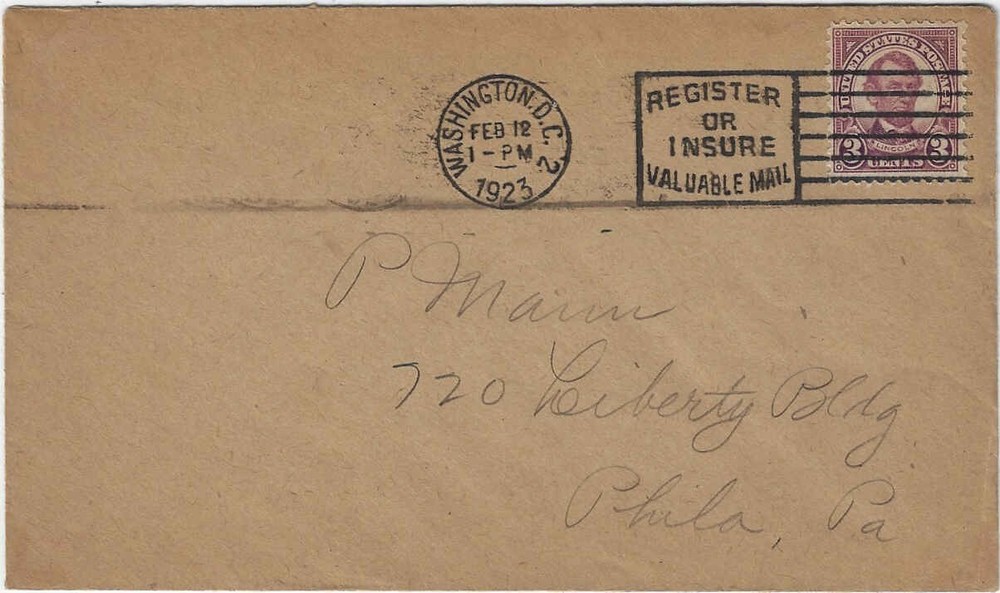 WASHINGTON, D.C. 2
FEB 12
1 - PM
1923
REGISTER
OR
INSURE
VALUABLE MAIL
UNITED STATES POSTAGE
LINCOLN
3 CENTS 3
P Marin
720 Liberty Bldg.
Phila, Pa